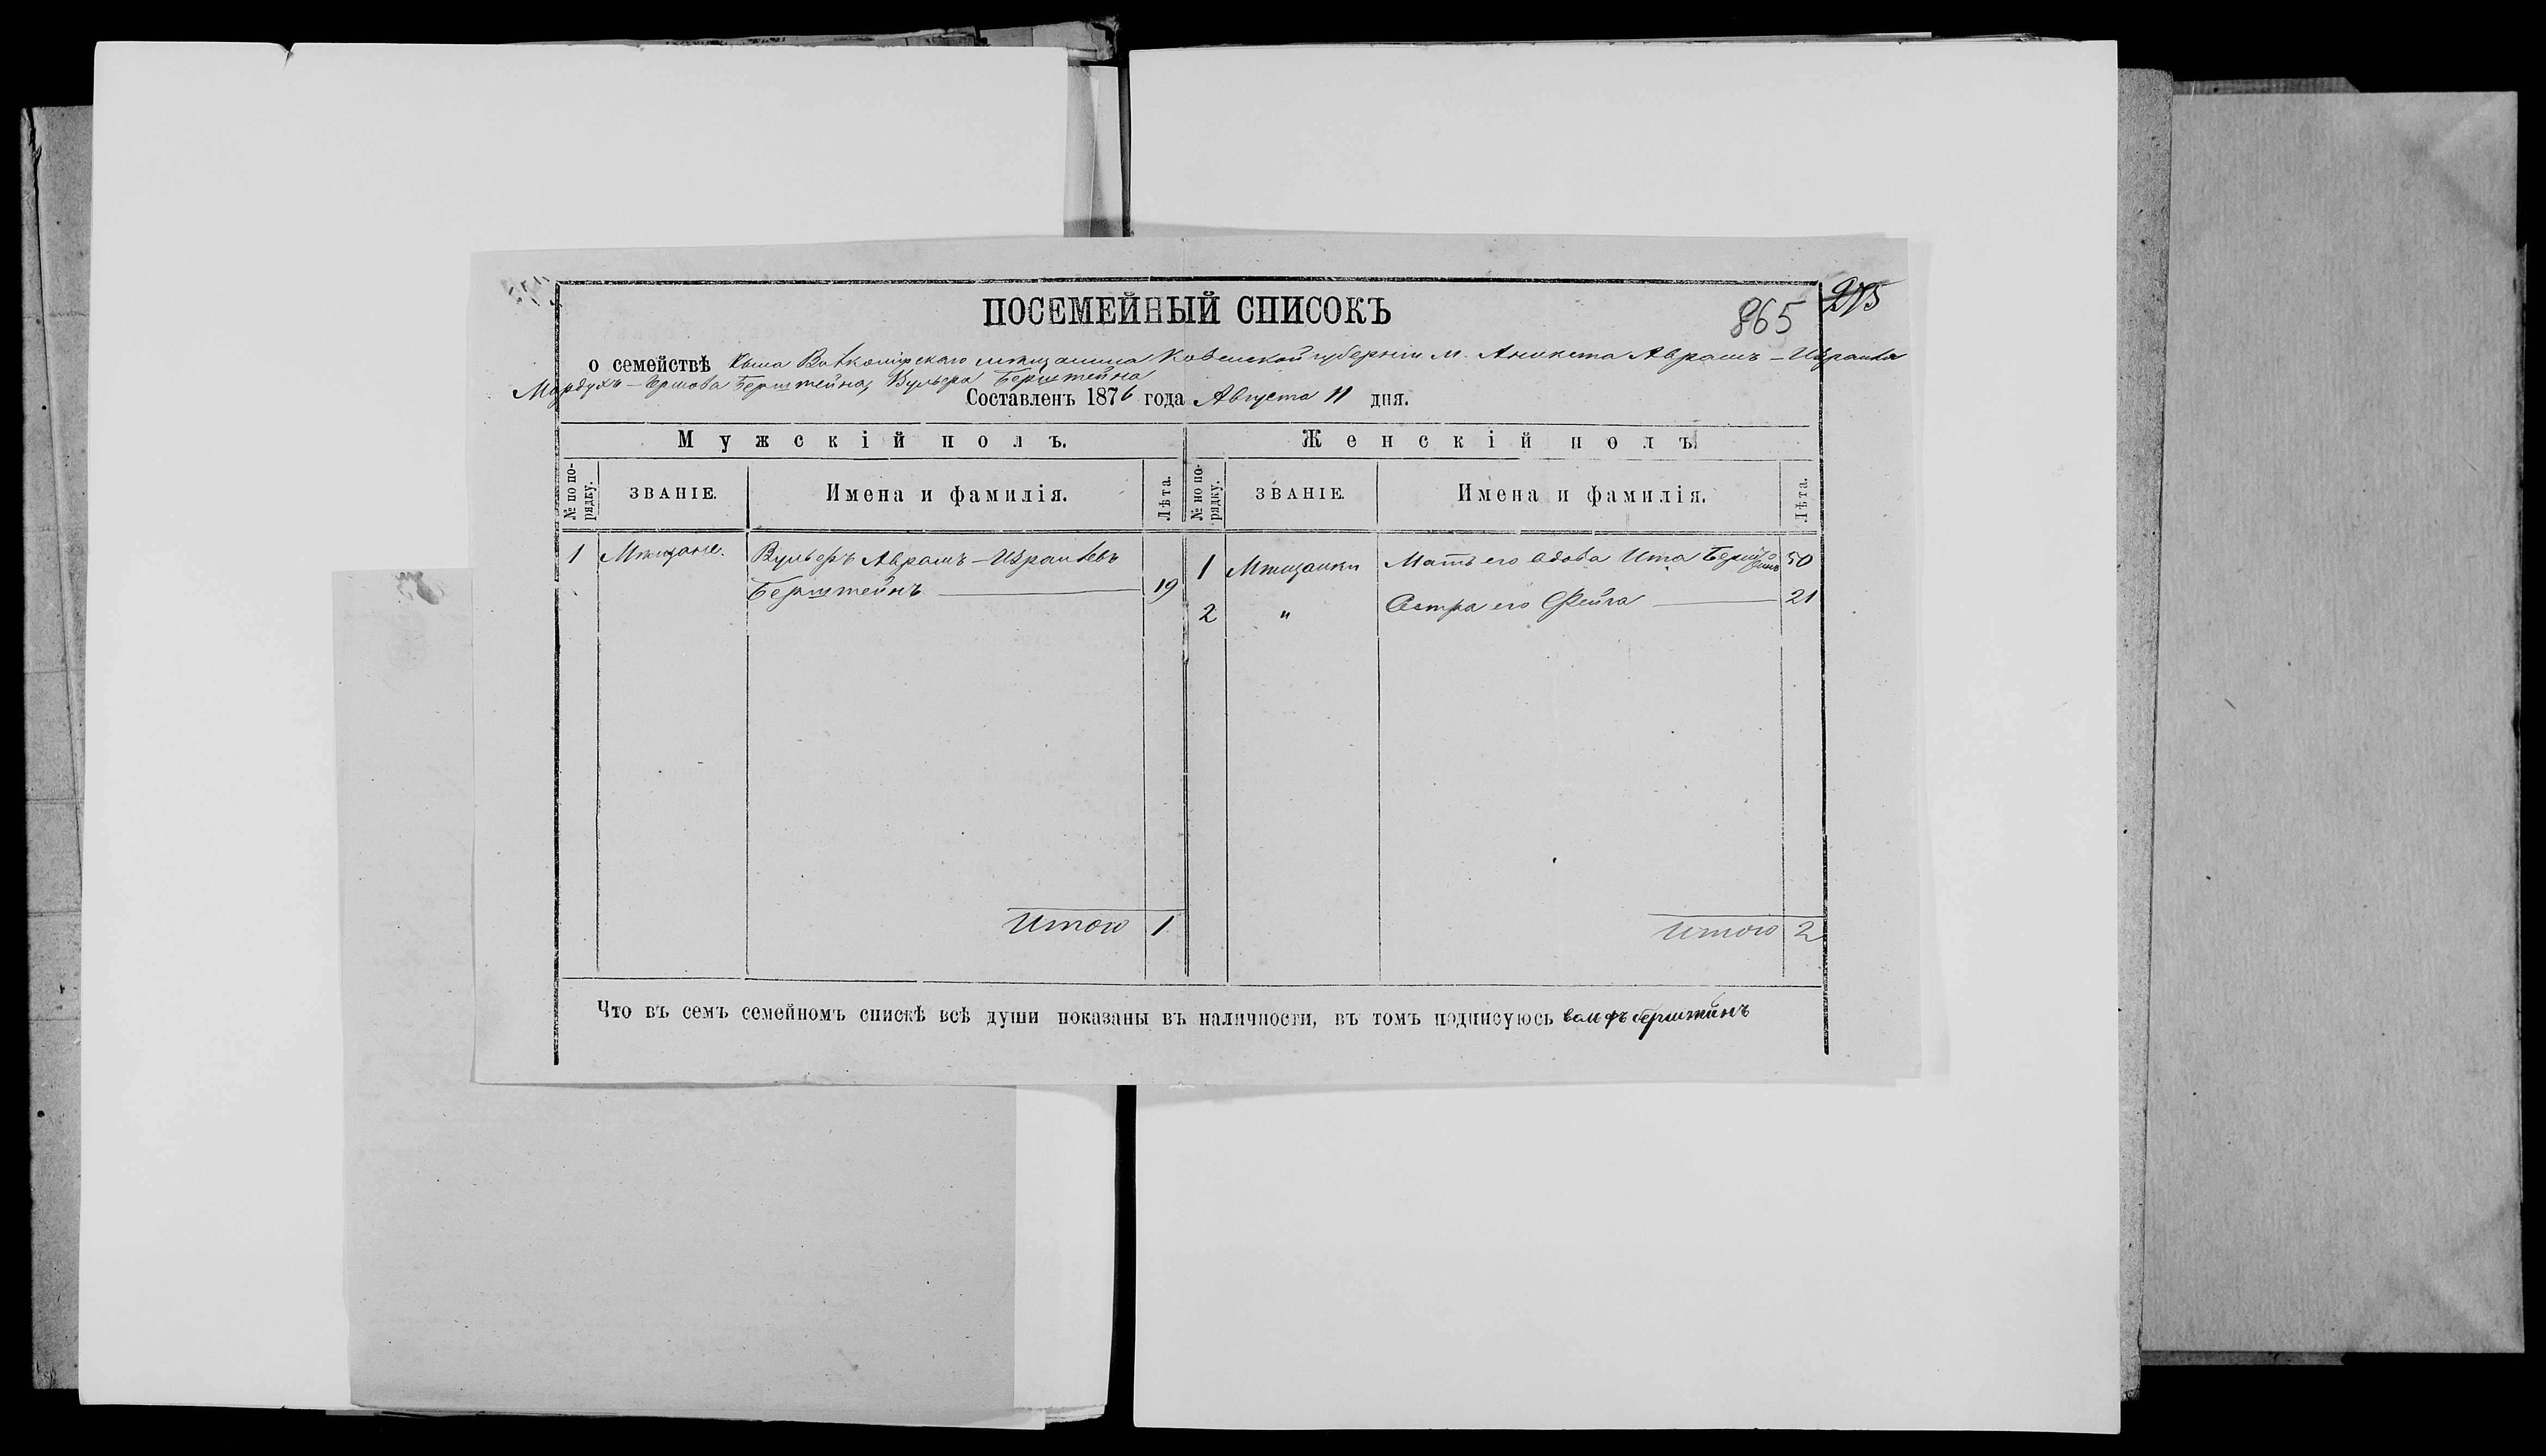 ПОСЕМЕЙНЫЙ СПИСОКЪ
865
215
о семействѣ сына Вилкомірскаго мѣщанина Ковенской губерніи м. Аникста Авраамъ-Израиля
Мордухъ-Ершова Берштейна, Вульфа Берштейна
Составленъ 1876 года Августа 11 дня.
Мужскій полъ. Женскій полъ.
№ по по-рядку. ЗВАНІЕ. Имена и фамилія. Лѣта. № по по-рядку. ЗВАНІЕ. Имена и фамилія. Лѣта.
1 Мѣщане. Вульфъ Аврамъ-Израилевъ
Берштейнъ 19
1 Мѣщанки Мать его вдова Ита 50
2 " Сестра его Фейга 21
Итого 1 Итого 2
Что въ семъ семейномъ спискѣ всѣ души показаны въ наличности, въ томъ подписуюсь волфъ берштейнъ